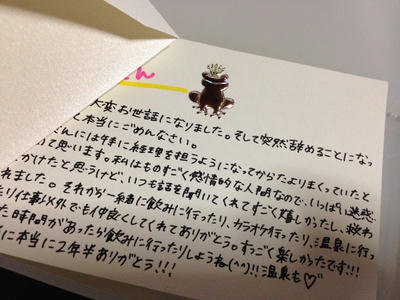 さん
大変お世話になりました。そして突然辞めることになっ
本当にごめんなさい。
さんには特に経理を担うようになってからたよりまくっていたと
て思います。私はものすごく感情的な人間なので、いっぱい迷惑
かけたと思うけど、いつも話を聞いてくれてすごく嬉しかったし、救わ
れました。それから一緒に飲みに行ったり、カラオケ行ったり、温泉に行っ
たり仕事以外でも仲良くしてくれてありがとう。すっごく楽しかったです!!!
た時間があったら飲みに行ったりしようね(^^)!!温泉も♡
に本当に2年半ありがとう!!!